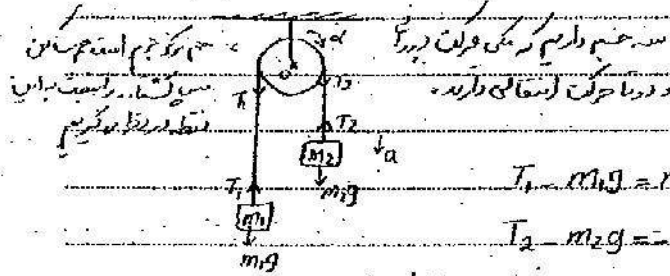 سه جسم داریم که یکی حرکت دورانی
و دوتا حرکت انتقالی دارند.
هم مرکز جرم است هم ساکن
پس گشتاور را نسبت به این
نقطه در نظر می‌گیریم
α
O
T₁ T₂
T₂
m₂ a
m₂g
T₁ T₁ - m₁g =
m₁
T₂ - m₂g = -
m₁g